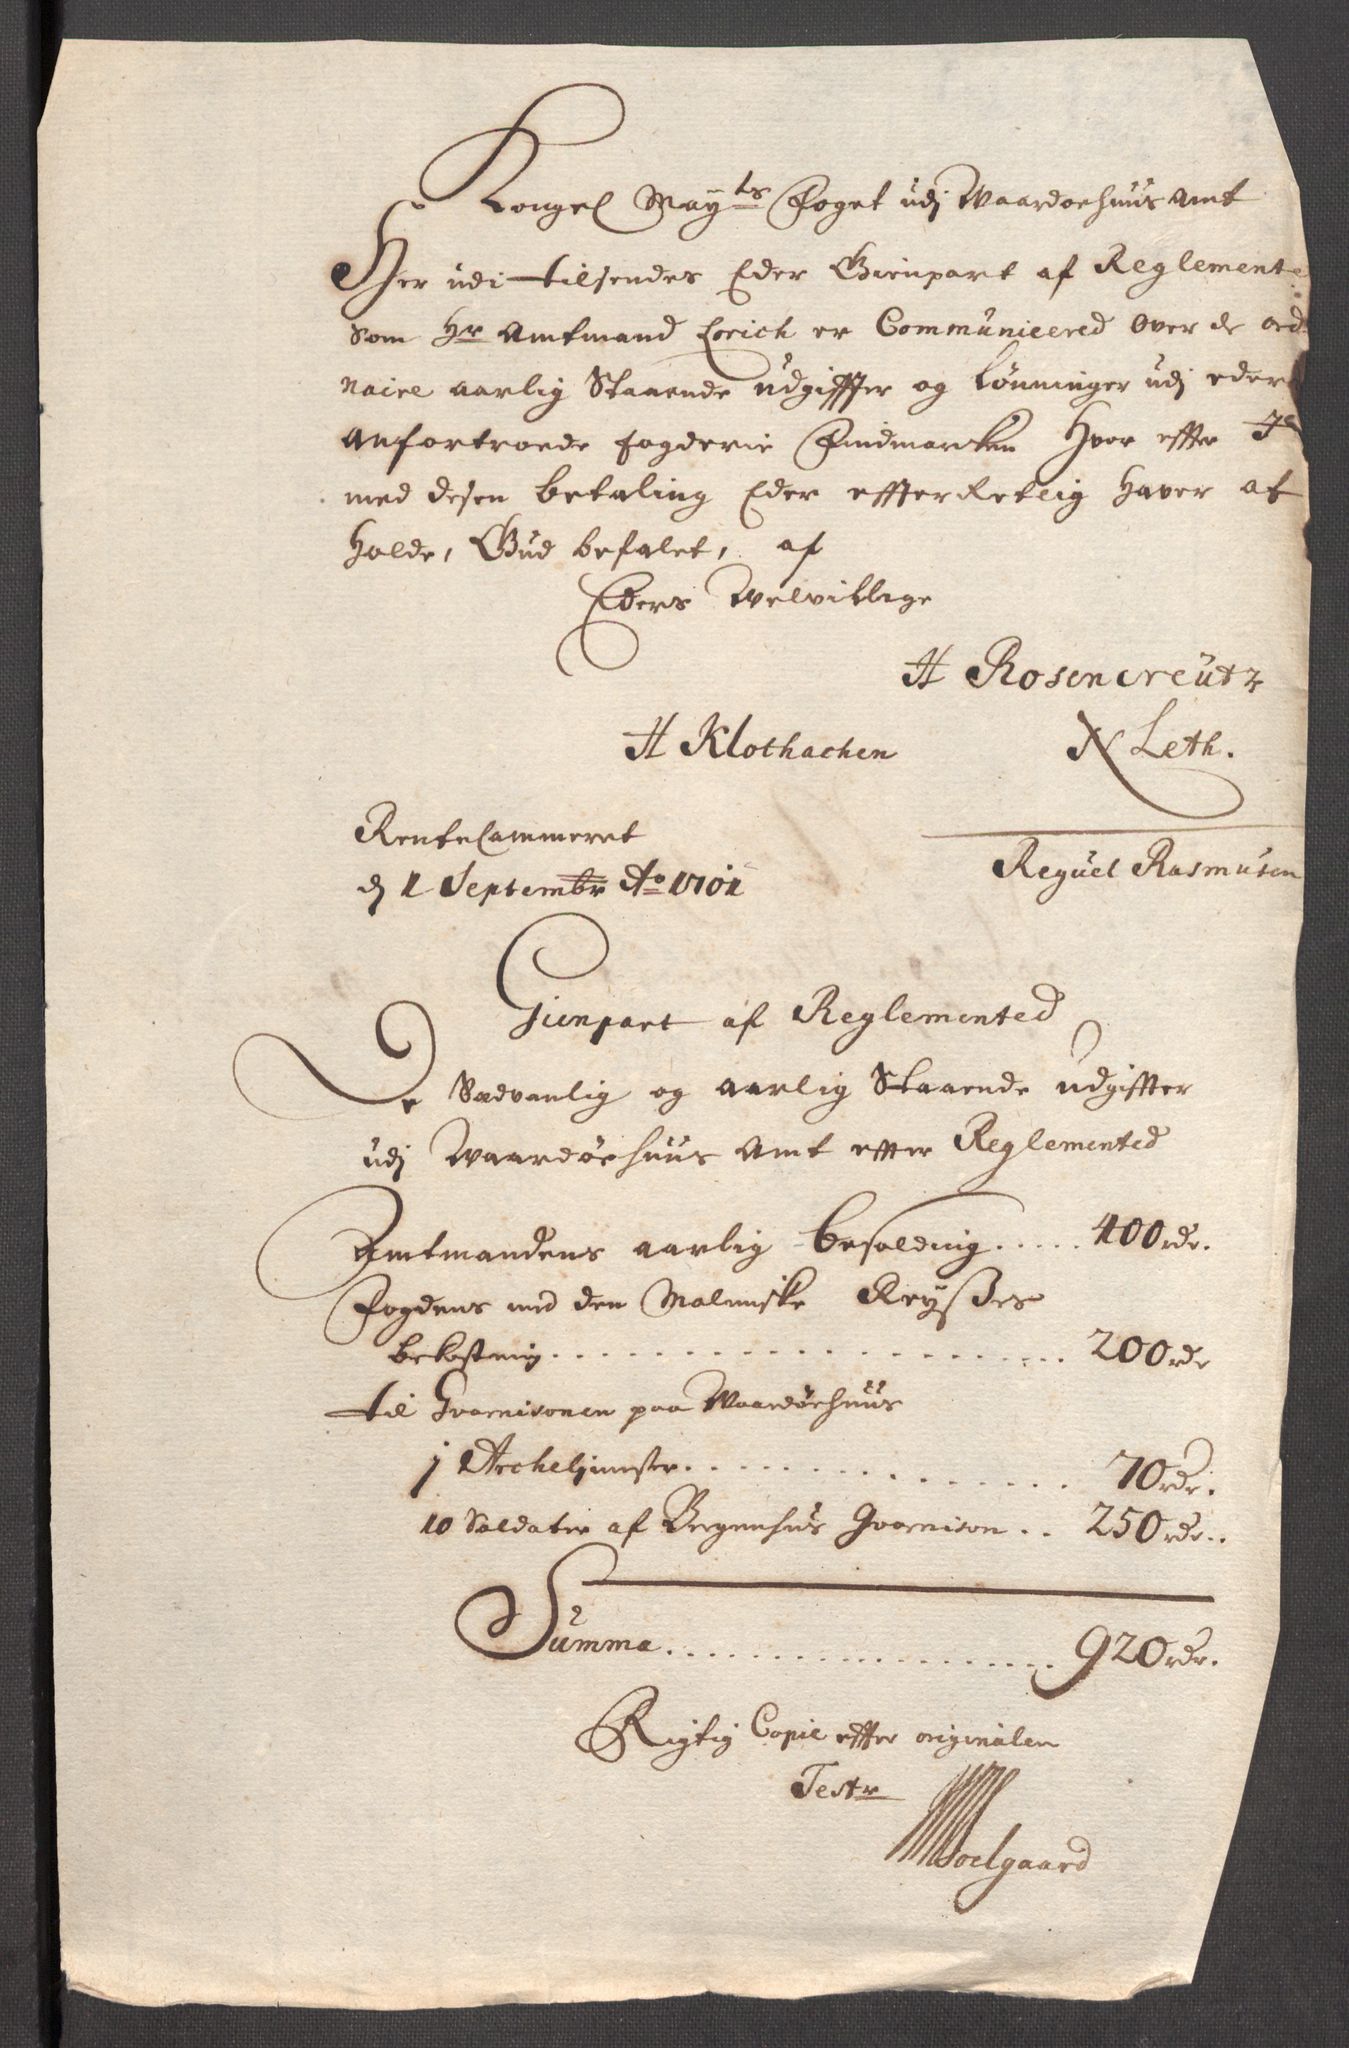 Kongel Mayts Foget udj Waardoehuus Amt
Her udi tilsendes Eder Gienpart af Reglemente
som Hr Amtmand Lorich er Communicered over de ord
naire aarlig Staaende udgiffter og Lønninger udj eders
anfortroede fogderie Findmarcken Hvor effter I
med desen betaling Eder effterRetlig haver at
holde, Gud befalet, af
Eders Welvillige
H Rosencreütz
H Klothacken N Leth.
RenteCammeret
d 1 Septembr Ao 1701
Reguel Rasmusen
Gienpart af Reglemented
De Sædvanlig og aarlig Staaende udgiffter
udj Waardøehuus Amt effter Reglemented
Amtmandens aarlig besolding..... 400 rdr.
Fogdens med den Malmiske Reyßes
bekostning..................... 200 rdr
til Gvarnisonen paa Waardøehuus
1 Archeljmester................ 70 rdr.
10 Soldater af Bergenhus Gvarnison.. 250 rdr..
Summa.................. 920 rdr.
Rigtig Copie effter originalen
Testr
Soelgaard